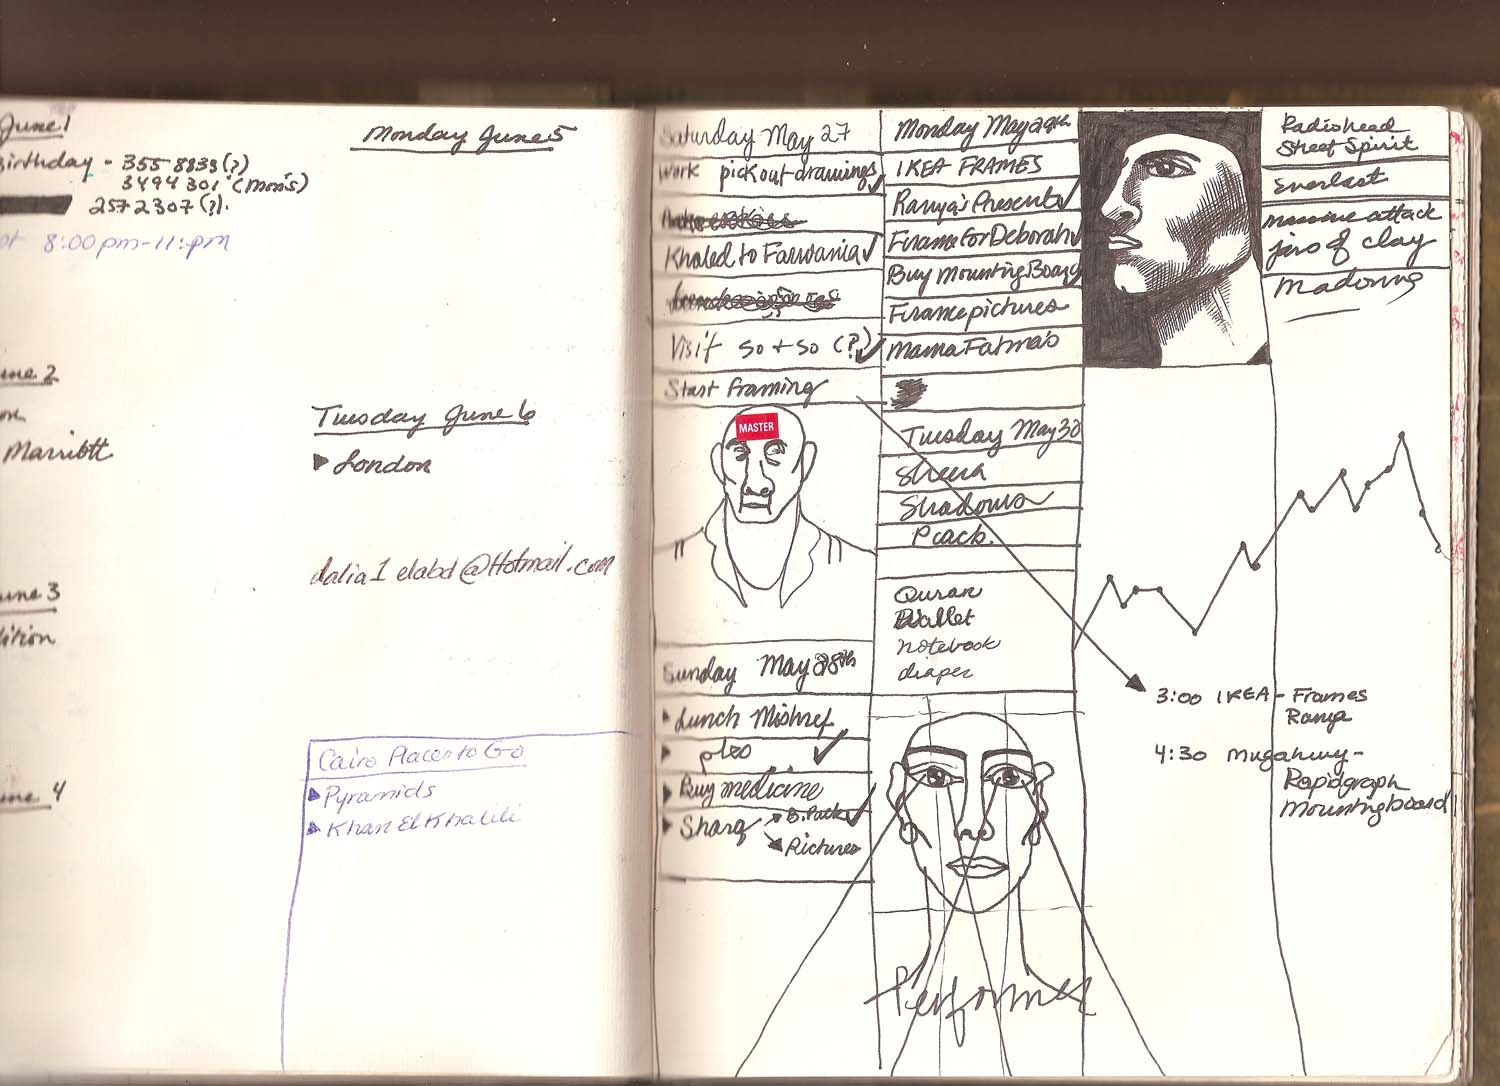 June 1
Birthday - 355 8833 (?)
3494 301 (Mon's)
257 2307 (?).
8:00 pm - 11:pm
June 2
Marriott
June 3
June 4
Monday June 5
Tuesday June 6
London
dalia1 elabd@Hotmail.com
Cairo Places to Go
Pyramids
Khan El Khalili
Saturday May 27
Work pick out drawings
Khaled to Farwania
Visit so + so (?)
Start framing
MASTER
Sunday May 28th
Lunch Mishref
Buy medicine
Sharq
B. Pack
Pictures
Monday May 29th
IKEA FRAMES
Ranya's Presents
Frame for Deborah
Buy Mounting Board
Frame pictures
Mama Fatma's
Tuesday May 30
Sheera
Shadows
Quran
Wallet
notebook
diaper
Performer
Radiohead
Street Spirit
Everlast
massive attack
jars of clay
madonna
3:00 IKEA - Frames
Ranya
4:30 Mugahwy -
Rapidgraph
Mounting board